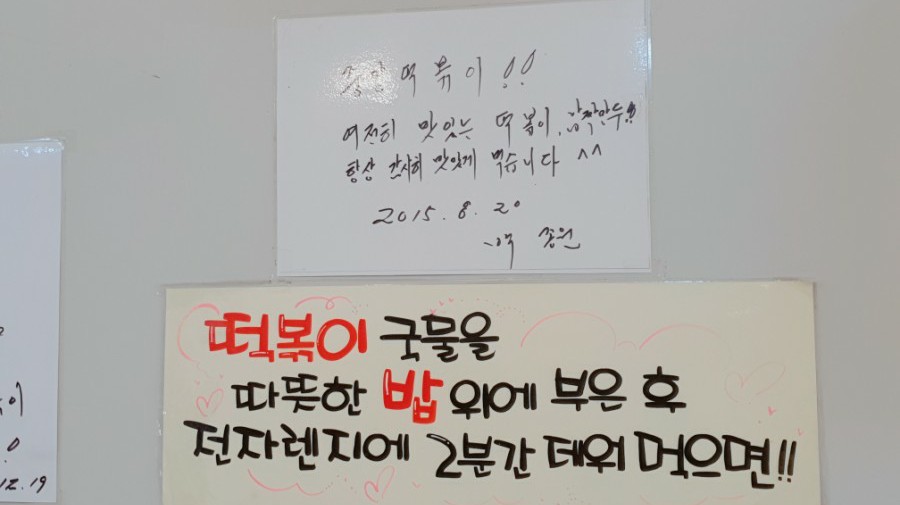 중앙떡볶이!!
여전히 맛있는 떡볶이, 납작만두!!
항상 감사히 맛있게 먹습니다 ^^
2015. 8. 20
백종원
떡볶이 국물을
따뜻한 밥 위에 부은 후
전자렌지에 2분간 데워 먹으면!!
이
12.19